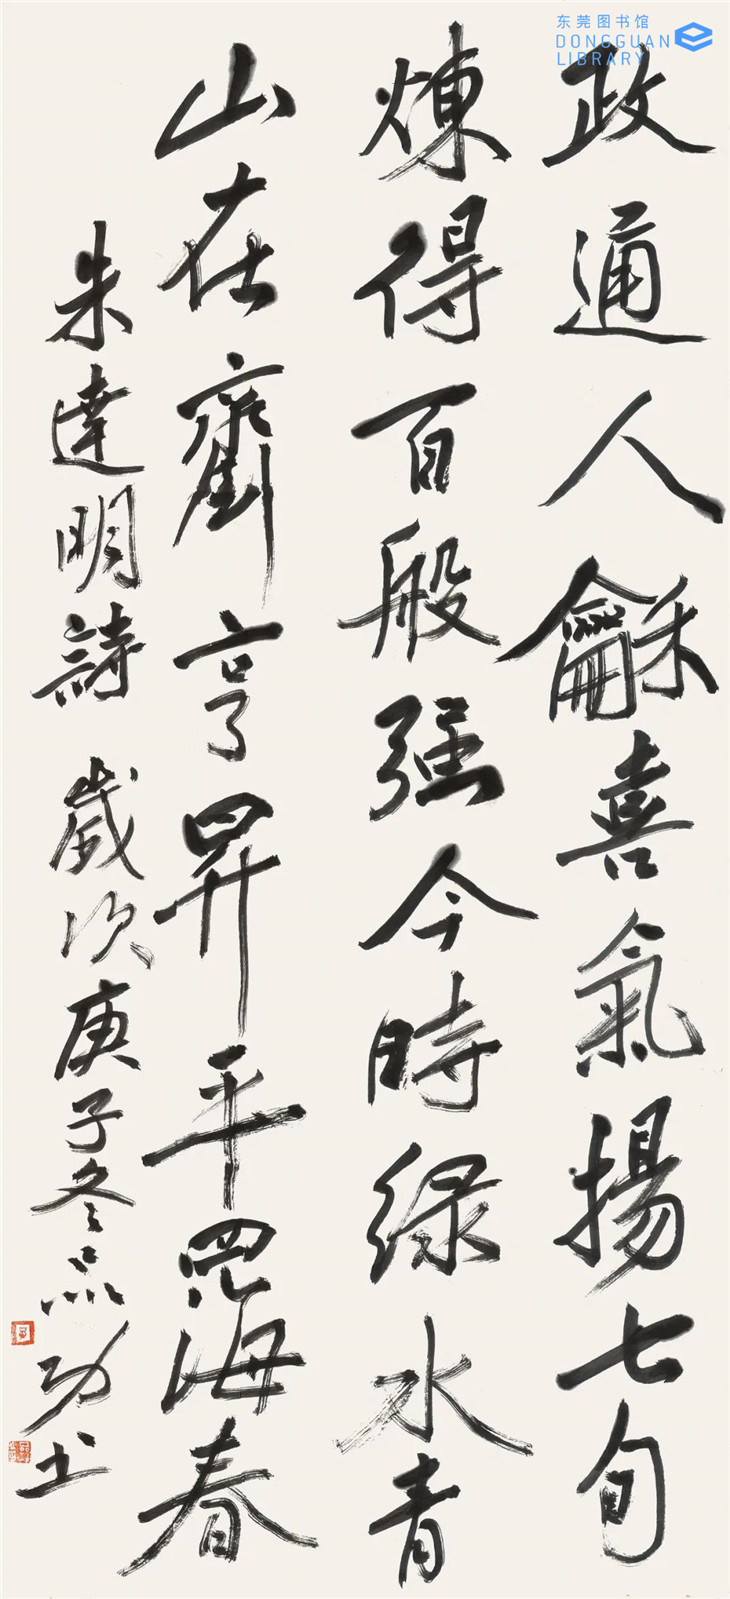 东莞图书馆
DONGGUAN
LIBRARY
政通人龢喜氣揚七旬
煉得百般强今時绿水青
山在齊亨昇平四海春
朱達明詩 歲次庚子冬 功书